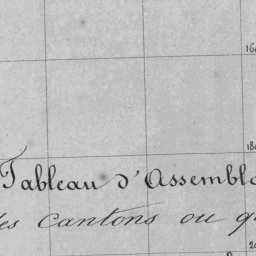 Tableau d'Assembl
les cantons ou q